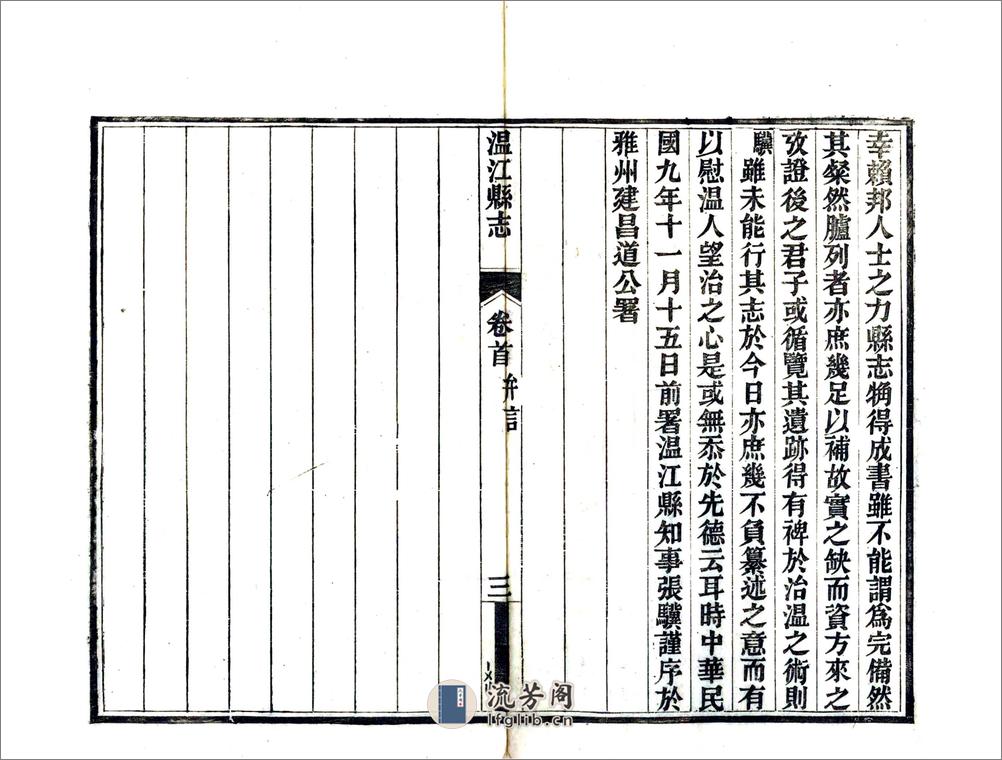 幸賴邦人士之力縣志觕得成書雖不能謂爲完備然
其粲然臚列者亦庶幾足以補故實之缺而資方來之
攷證後之君子或循覽其遺跡得有裨於治溫之術則
驥雖未能行其志於今日亦庶幾不負纂述之意而有
以慰溫人望治之心是或無忝於先德云耳時中華民
國九年十一月十五日前署溫江縣知事張驥謹序於
雅州建昌道公署
温江縣志
卷首
弁言
三
流芳阁
lfglib.cn